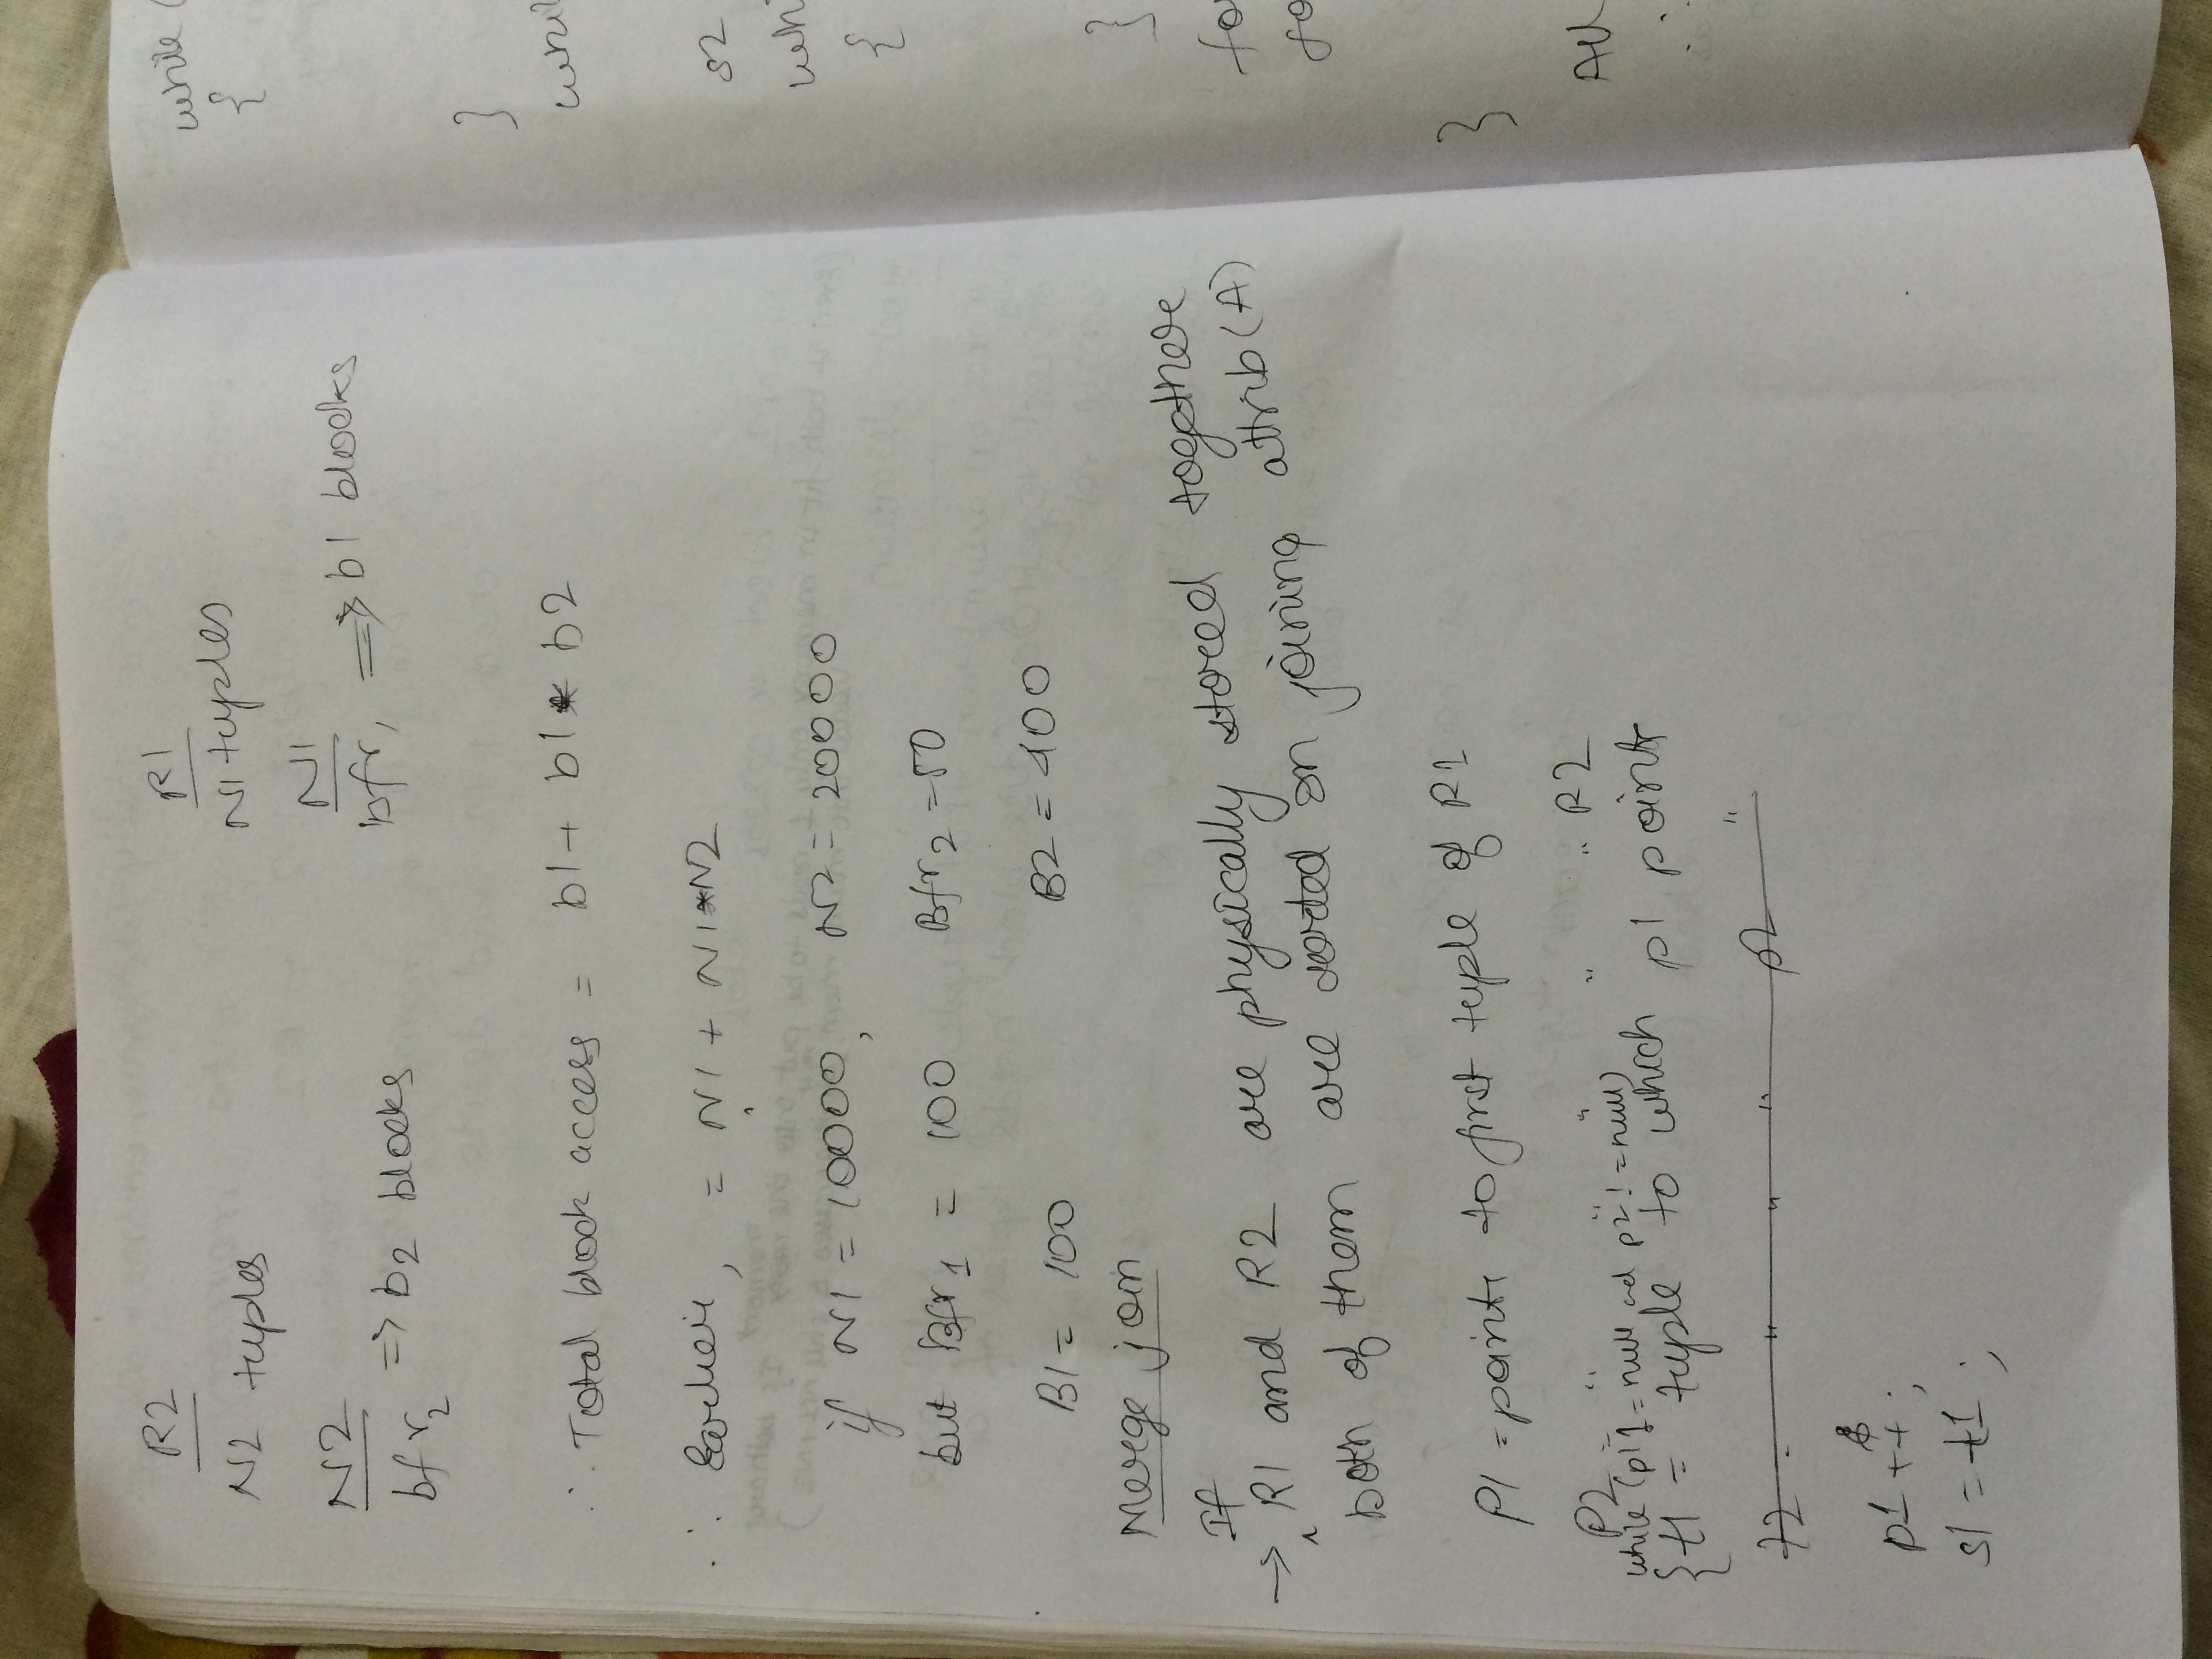 R2
N2 tuples
N2
bfr2 => b2 blocks
R1
N1 tuples
N1
Bfr1 => b1 blocks
∴ Total block access = b1 + b1 * b2
∴ Earlier, = N1 + N1*N2
if N1 = 10000, N2 = 20000
but Bfr1 = 100 Bfr2 = 50
B1 = 100 B2 = 400
Merge join
If
→ R1 and R2 are physically stored together
both of them are sorted on joining attrib(A)
P1 = points to first tuple of R1
P2 = " " " " " R2
while (p1 != null and p2 != null)
{ t1 = tuple to which p1 points
t2 = " " " p2 "
p1 ++;
s1 = t1 ;
while (
{
}
whil
s2
whi
{
}
fo
}
All